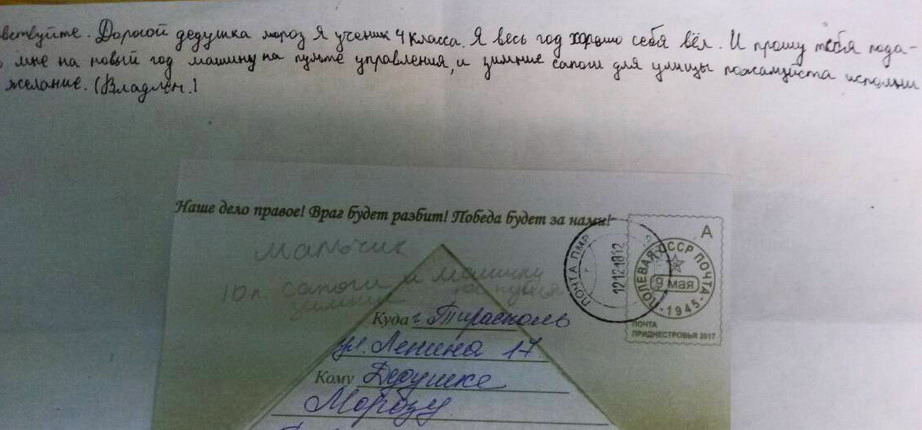 вствуйте. Дорогой дедушка мороз я ученик 4 класса. Я весь год хорошо себя вёл. И прошу тебя пода-
мне на новый год машину на пумте управления, и зимние сапоги для улицы пожалуйста исполни
желание. (Владлен.)
Наше дело правое! Враг будет разбит! Победа будет за нами!
мальчик
10л. сапоги и машину
зимние на пульте
Куда г. Тирасполь
ул. Ленина 17
Кому Дедушке
Морозу
ПОЧТА ПМР
12121812
А
ПОЛЕВАЯ СССР ПОЧТА
9 мая
1945
ПОЧТА
ПРИДНЕСТРОВЬЯ 2017